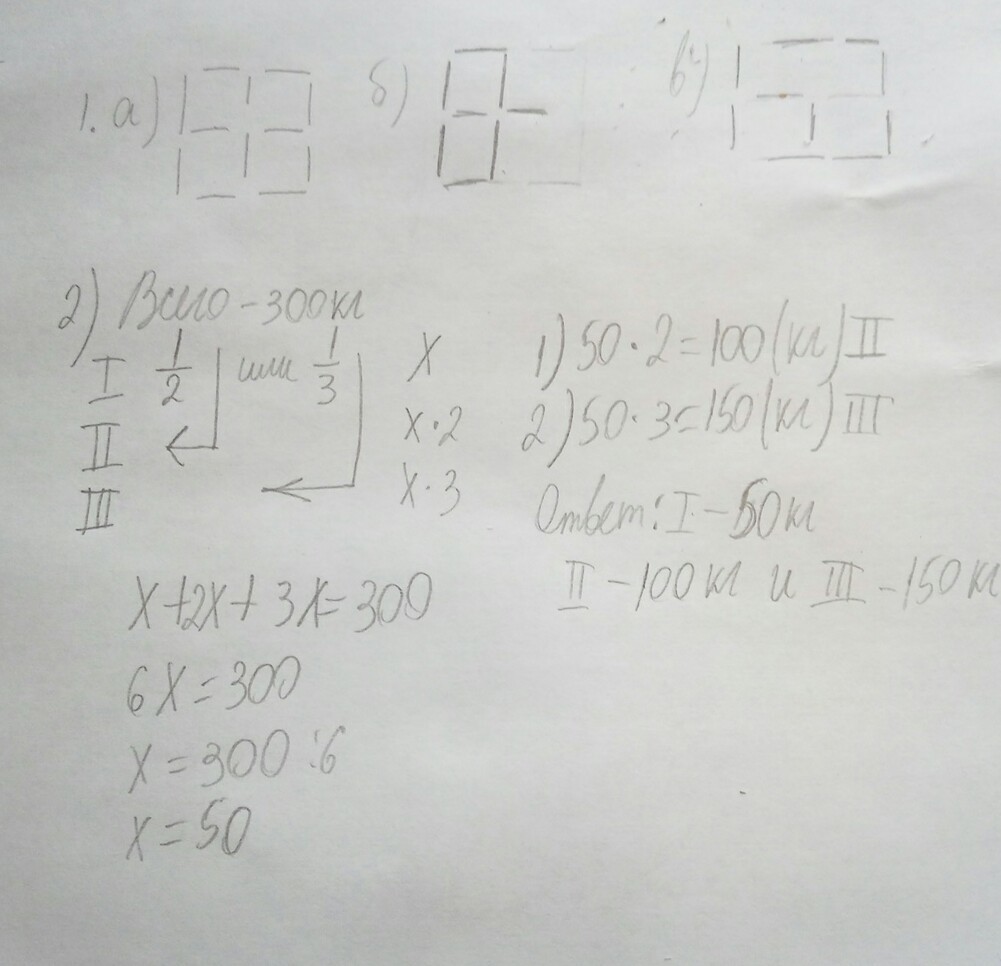 1. а) б) в)
2) Всего - 300 кг
I 1/2 или 1/3 X
II X·2
III X·3
X + 2X + 3X = 300
6X = 300
X = 300 : 6
X = 50
1) 50 · 2 = 100 (кг) II
2) 50 · 3 = 150 (кг) III
Ответ: I - 50 кг
II - 100 кг и III - 150 кг